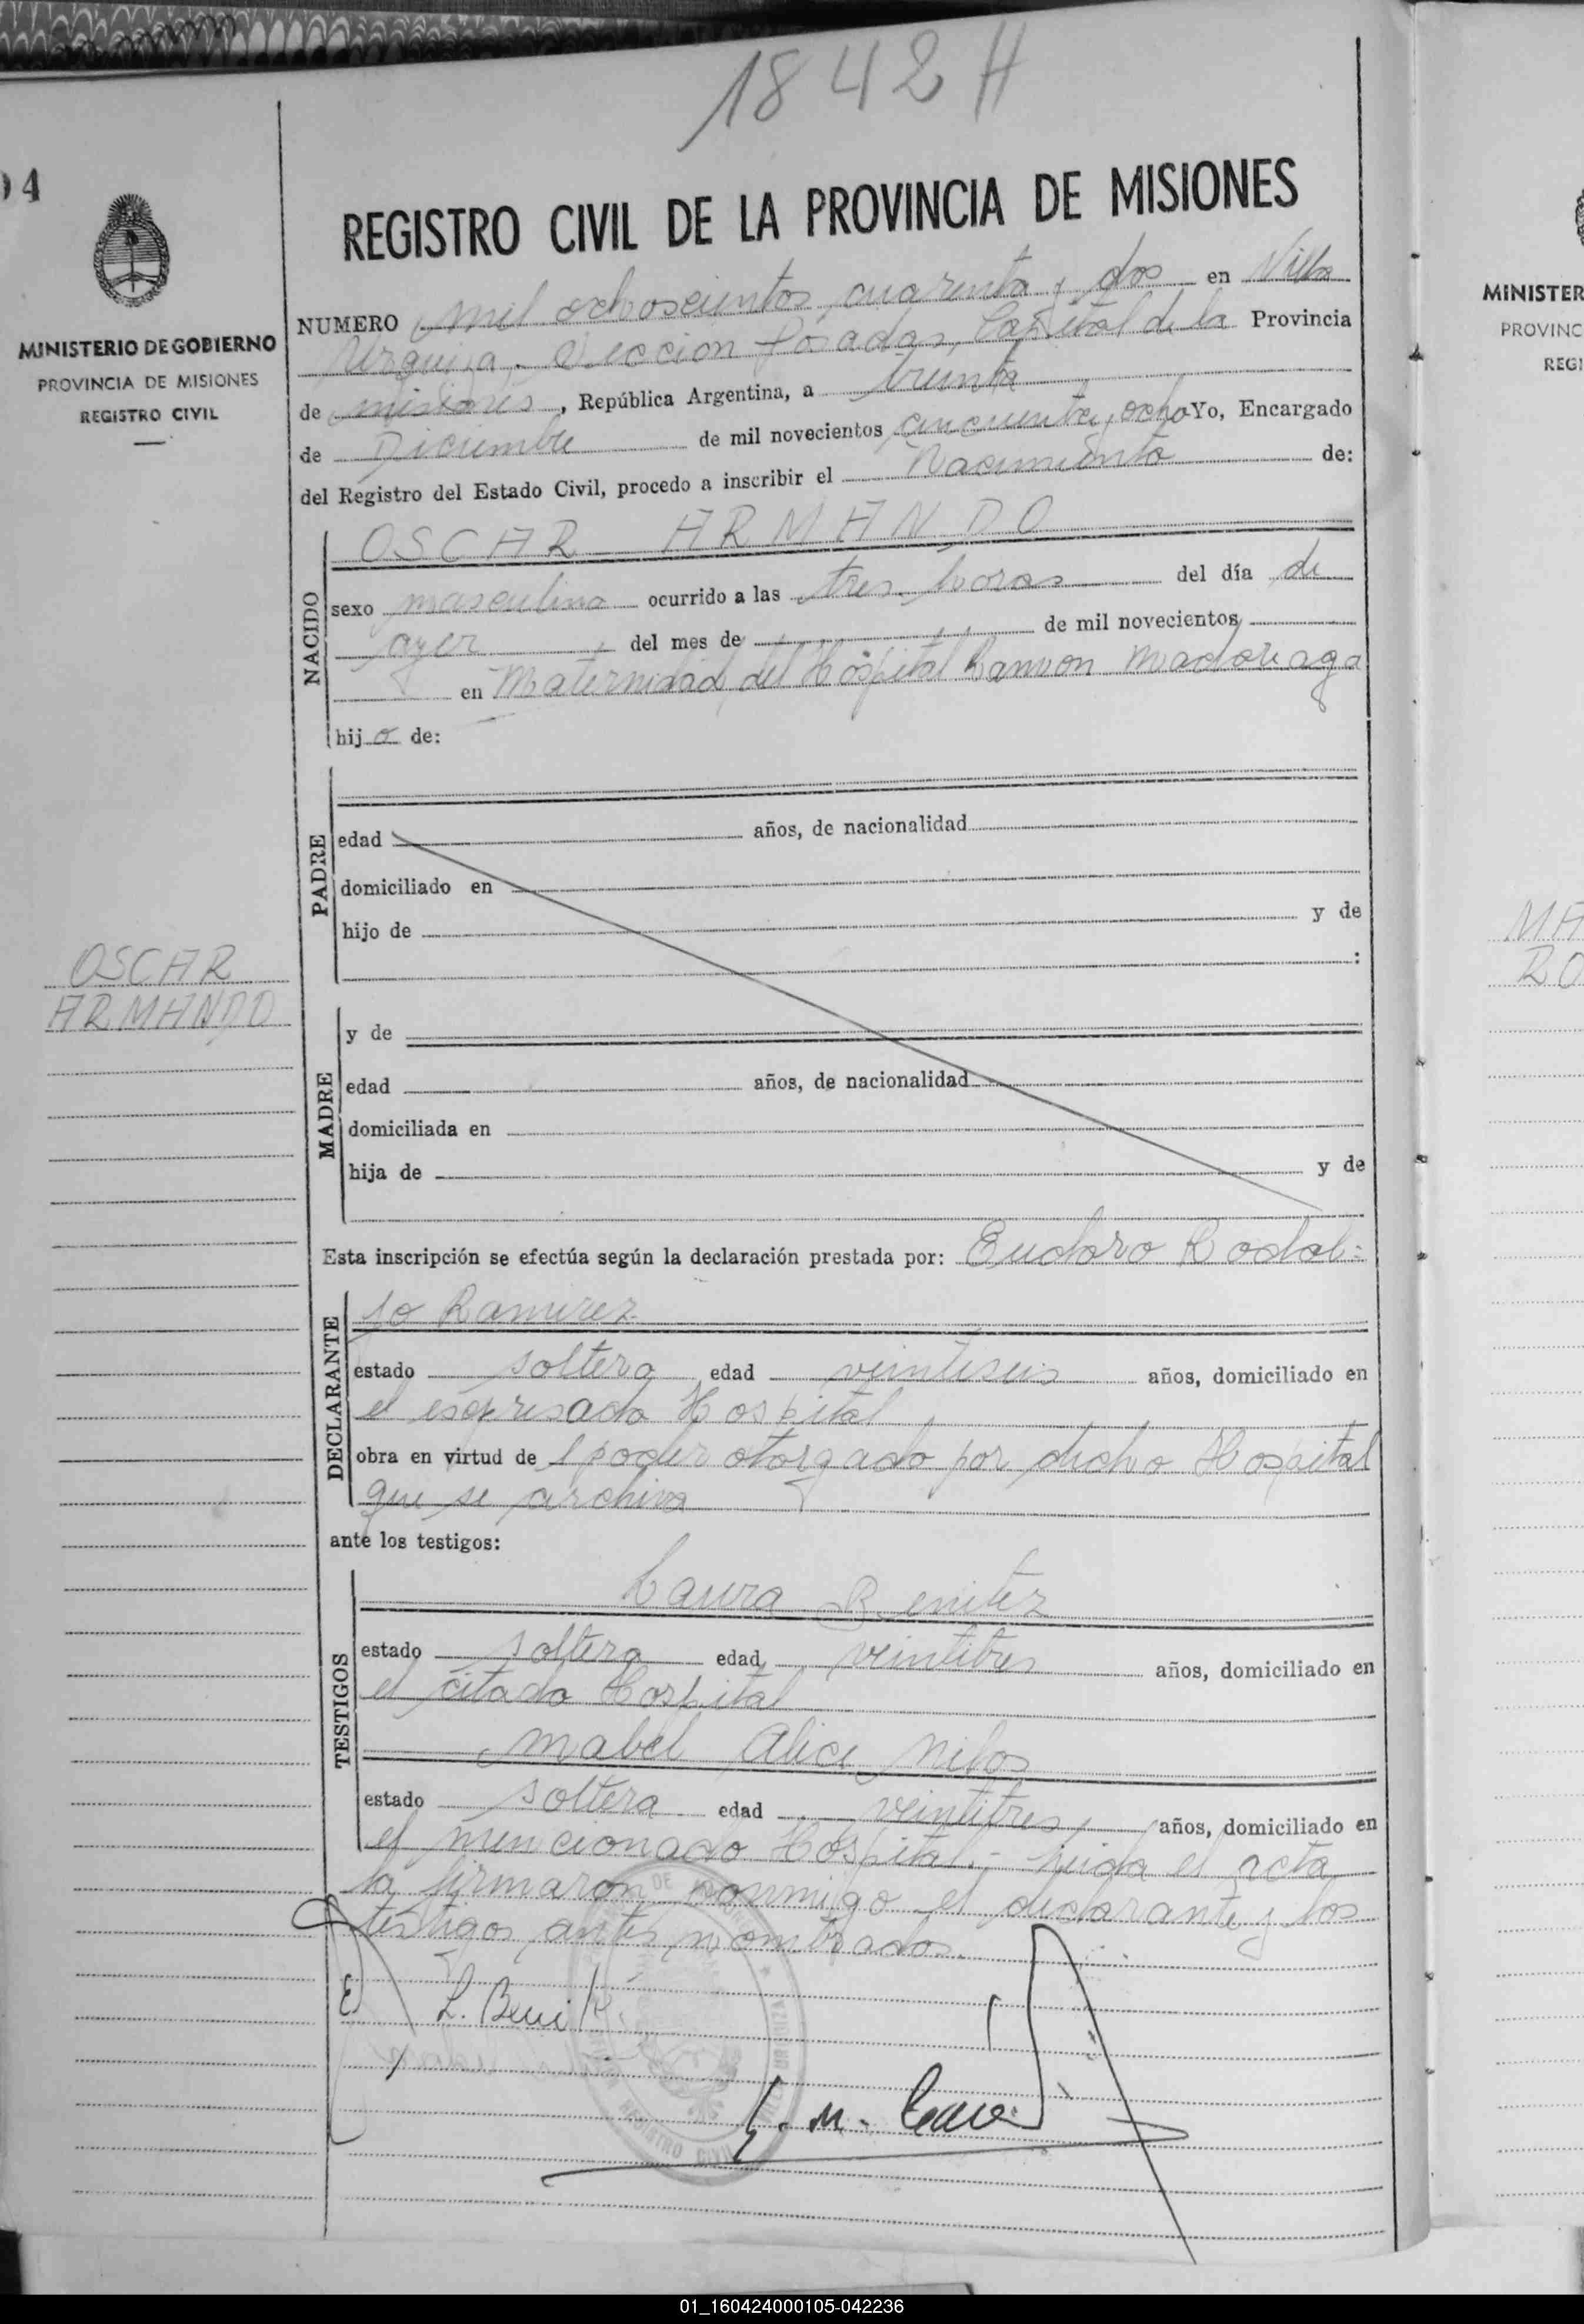 1842 H
04
REGISTRO CIVIL DE LA PROVINCIA DE MISIONES
MINISTERIO DE GOBIERNO
PROVINCIA DE MISIONES
REGISTRO CIVIL
NUMERO mil ochoscientos cuarenta y dos en Villa
Urquiza. Seccion Posadas, Capital de la Provincia
de misiones, República Argentina, a treinta
de Diciembre de mil novecientos cincuenta y ocho Yo, Encargado
del Registro del Estado Civil, procedo a inscribir el Nacimiento de:
NACIDO
OSCAR ARMANDO
sexo masculino ocurrido a las tres horas del día de
ayer del mes de de mil novecientos
en Maternidad del Hospital Ramon Madariaga
hijo de:
PADRE
edad años, de nacionalidad
domiciliado en
hijo de y de
:
OSCAR
ARMANDO
MADRE
y de
edad años, de nacionalidad
domiciliada en
hija de y de
Esta inscripción se efectúa según la declaración prestada por: Eudoro Rodol-
fo Ramirez
DECLARANTE
estado soltero edad veintiseis años, domiciliado en
el expresado Hospital
obra en virtud de 1 poder otorgado por dicho Hospital
que se archiva
ante los testigos:
TESTIGOS
Laura Benitez
estado soltera edad veintitres años, domiciliado en
el citado Hospital
Mabel Alice
estado soltera edad veintitres años, domiciliado en
el mencionado Hospital.- Leida el acta
la firmaron conmigo el declarante y los
testigos antes nombrados.
L. Benitez
REGISTRO CIVIL
MINISTER
PROVINC
REGI
MA
RO
01_160424000105-042236